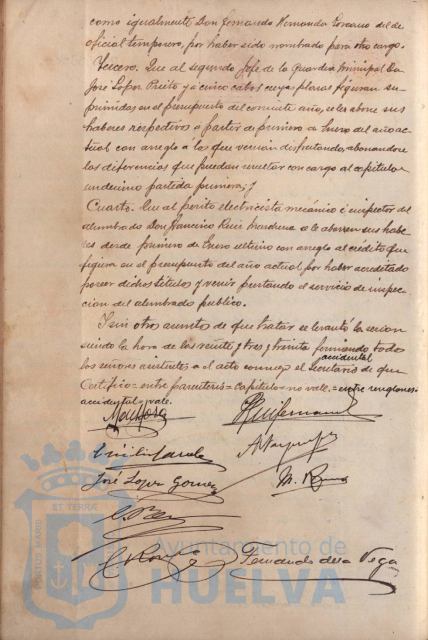 como igualmente Don Fernando Hernando Lozano del de
oficial temporero, por haber sido nombrado para otro cargo.
Tercero. Que al segundo Jefe de la Guardia Municipal Don
José Lopez Prieto y a cinco cabos cuyas plazas figuran su-
primidas en el presupuesto del corriente año, se les abone sus
haberes respectivos a partir de primero de Enero del año ac-
tual con arreglo a los que venian disfrutando, abonandose
las diferencias que puedan resultar con cargo al capitulo
undecimo partida primera; y
Cuarto. Que al perito electricista mecánico é inspector del
alumbrado Don Francisco Ruiz Marchena se le abonen sus habe-
res desde primero de Enero ultimo con arreglo al crédito que
figura en el presupuesto del año actual por haber acreditado
poseer dichos titulos y venir prestando el servicio de inspec-
cion del alumbrado publico.
Y sin otros asuntos de que tratar se levantó la sesion
siendo la hora de las veinte y tres y treinta firmando todos
accidental
los señores asistentes a el acto conmigo el Secretario de que
Certifico = entre parentesis = capitulos no vale. = entre renglones =
accidental = vale.
José Lopez Gomez
M. Romo
Fernando de la Vega
ET TERRÆ
PORTUS MARIS
Ayuntamiento de
HUELVA